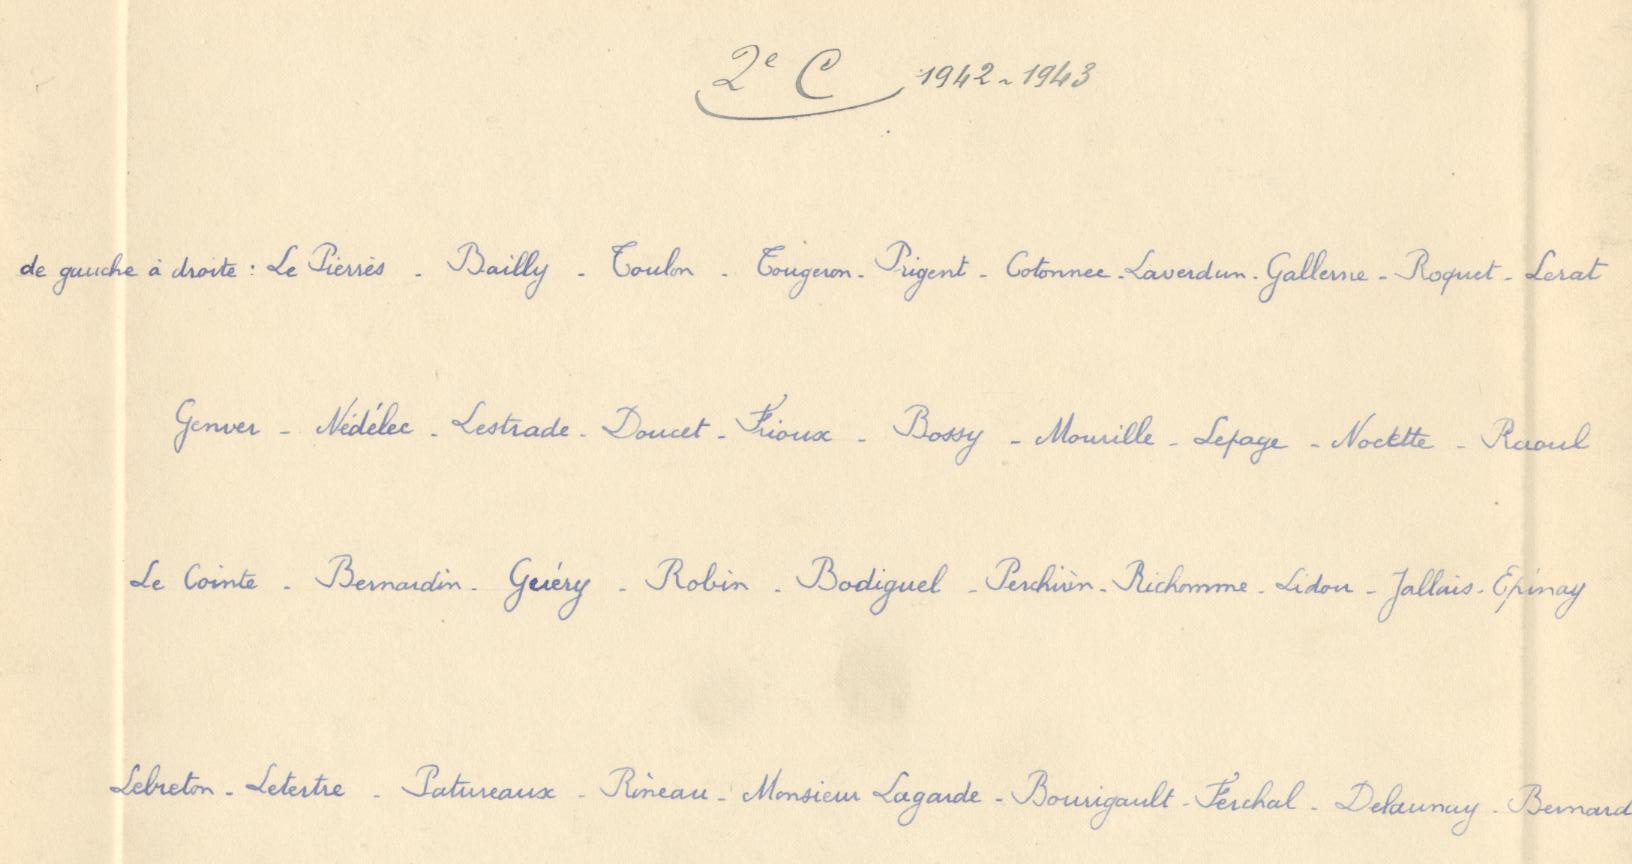 2e C 1942-1943
de gauche à droite : Le Pierrès - Bailly - Toulon - Tougeron - Prigent - Cotonnec - Laverdun - Gallerne - Roquet - Lerat
Genver - Nédélec - Lestrade - Doucet - Frioux - Bossy - Mourille - Lepage - Nockette - Raoul
Le Cointe - Bernardin - Guéry - Robin - Bodiguel - Perchirin - Richomme - Lidou - Jallais - Epinay
Lebreton - Letertre - Patureaux - Rineau - Monsieur Lagarde - Bourigault - Ferchal - Delaunay - Bernard